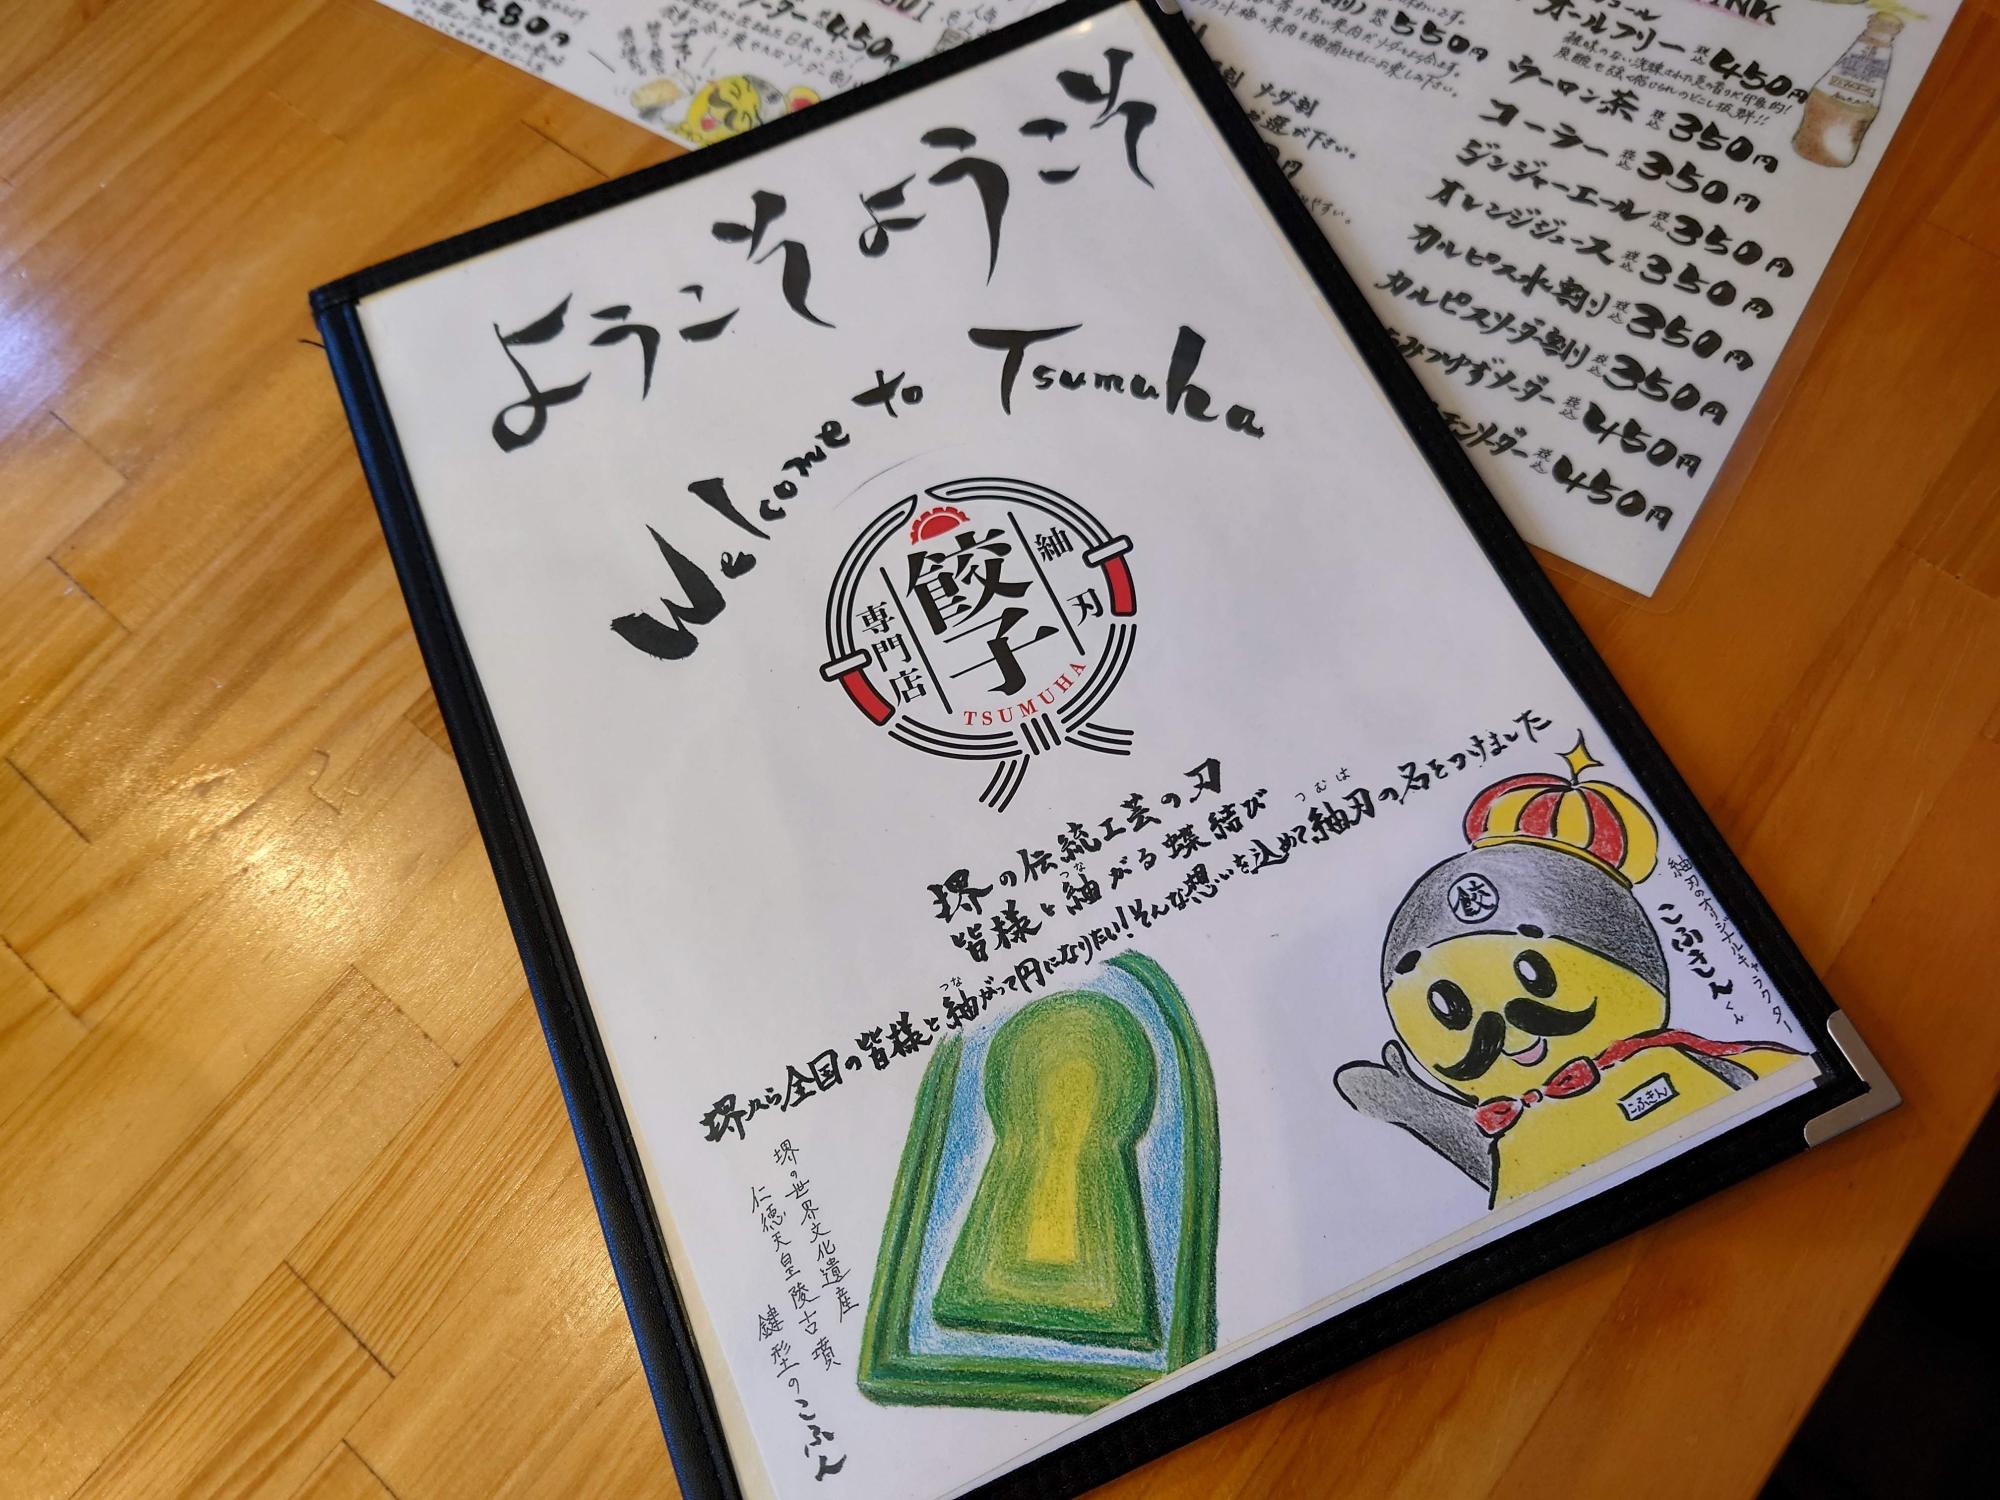 ようこそようこそ
Welcome to Tsumuha
紬刃
餃子
専門店
TSUMUHA
堺の伝統工芸の刃
皆様と紬がる蝶結び
つな
堺から全国の皆様と紬がって円になりたい!そんな想いを込めて紬刃の名をつけました
つな
つむは
堺の世界文化遺産
仁徳天皇陵古墳
鍵型のこふん
餃
紬刃のオリジナルキャラクター
こふきんくん
こふきん
480円
450円
550円
オールフリー 税込450円
雑味のない洗練された麦の香りが印象的!
ウーロン茶 税込350円
コーラ 税込350円
ジンジャーエール 税込350円
オレンジジュース 税込350円
カルピス水割り 税込350円
カルピスソーダ割り 税込350円
みつゆずソーダー 税込450円
ソーダー 税込450円